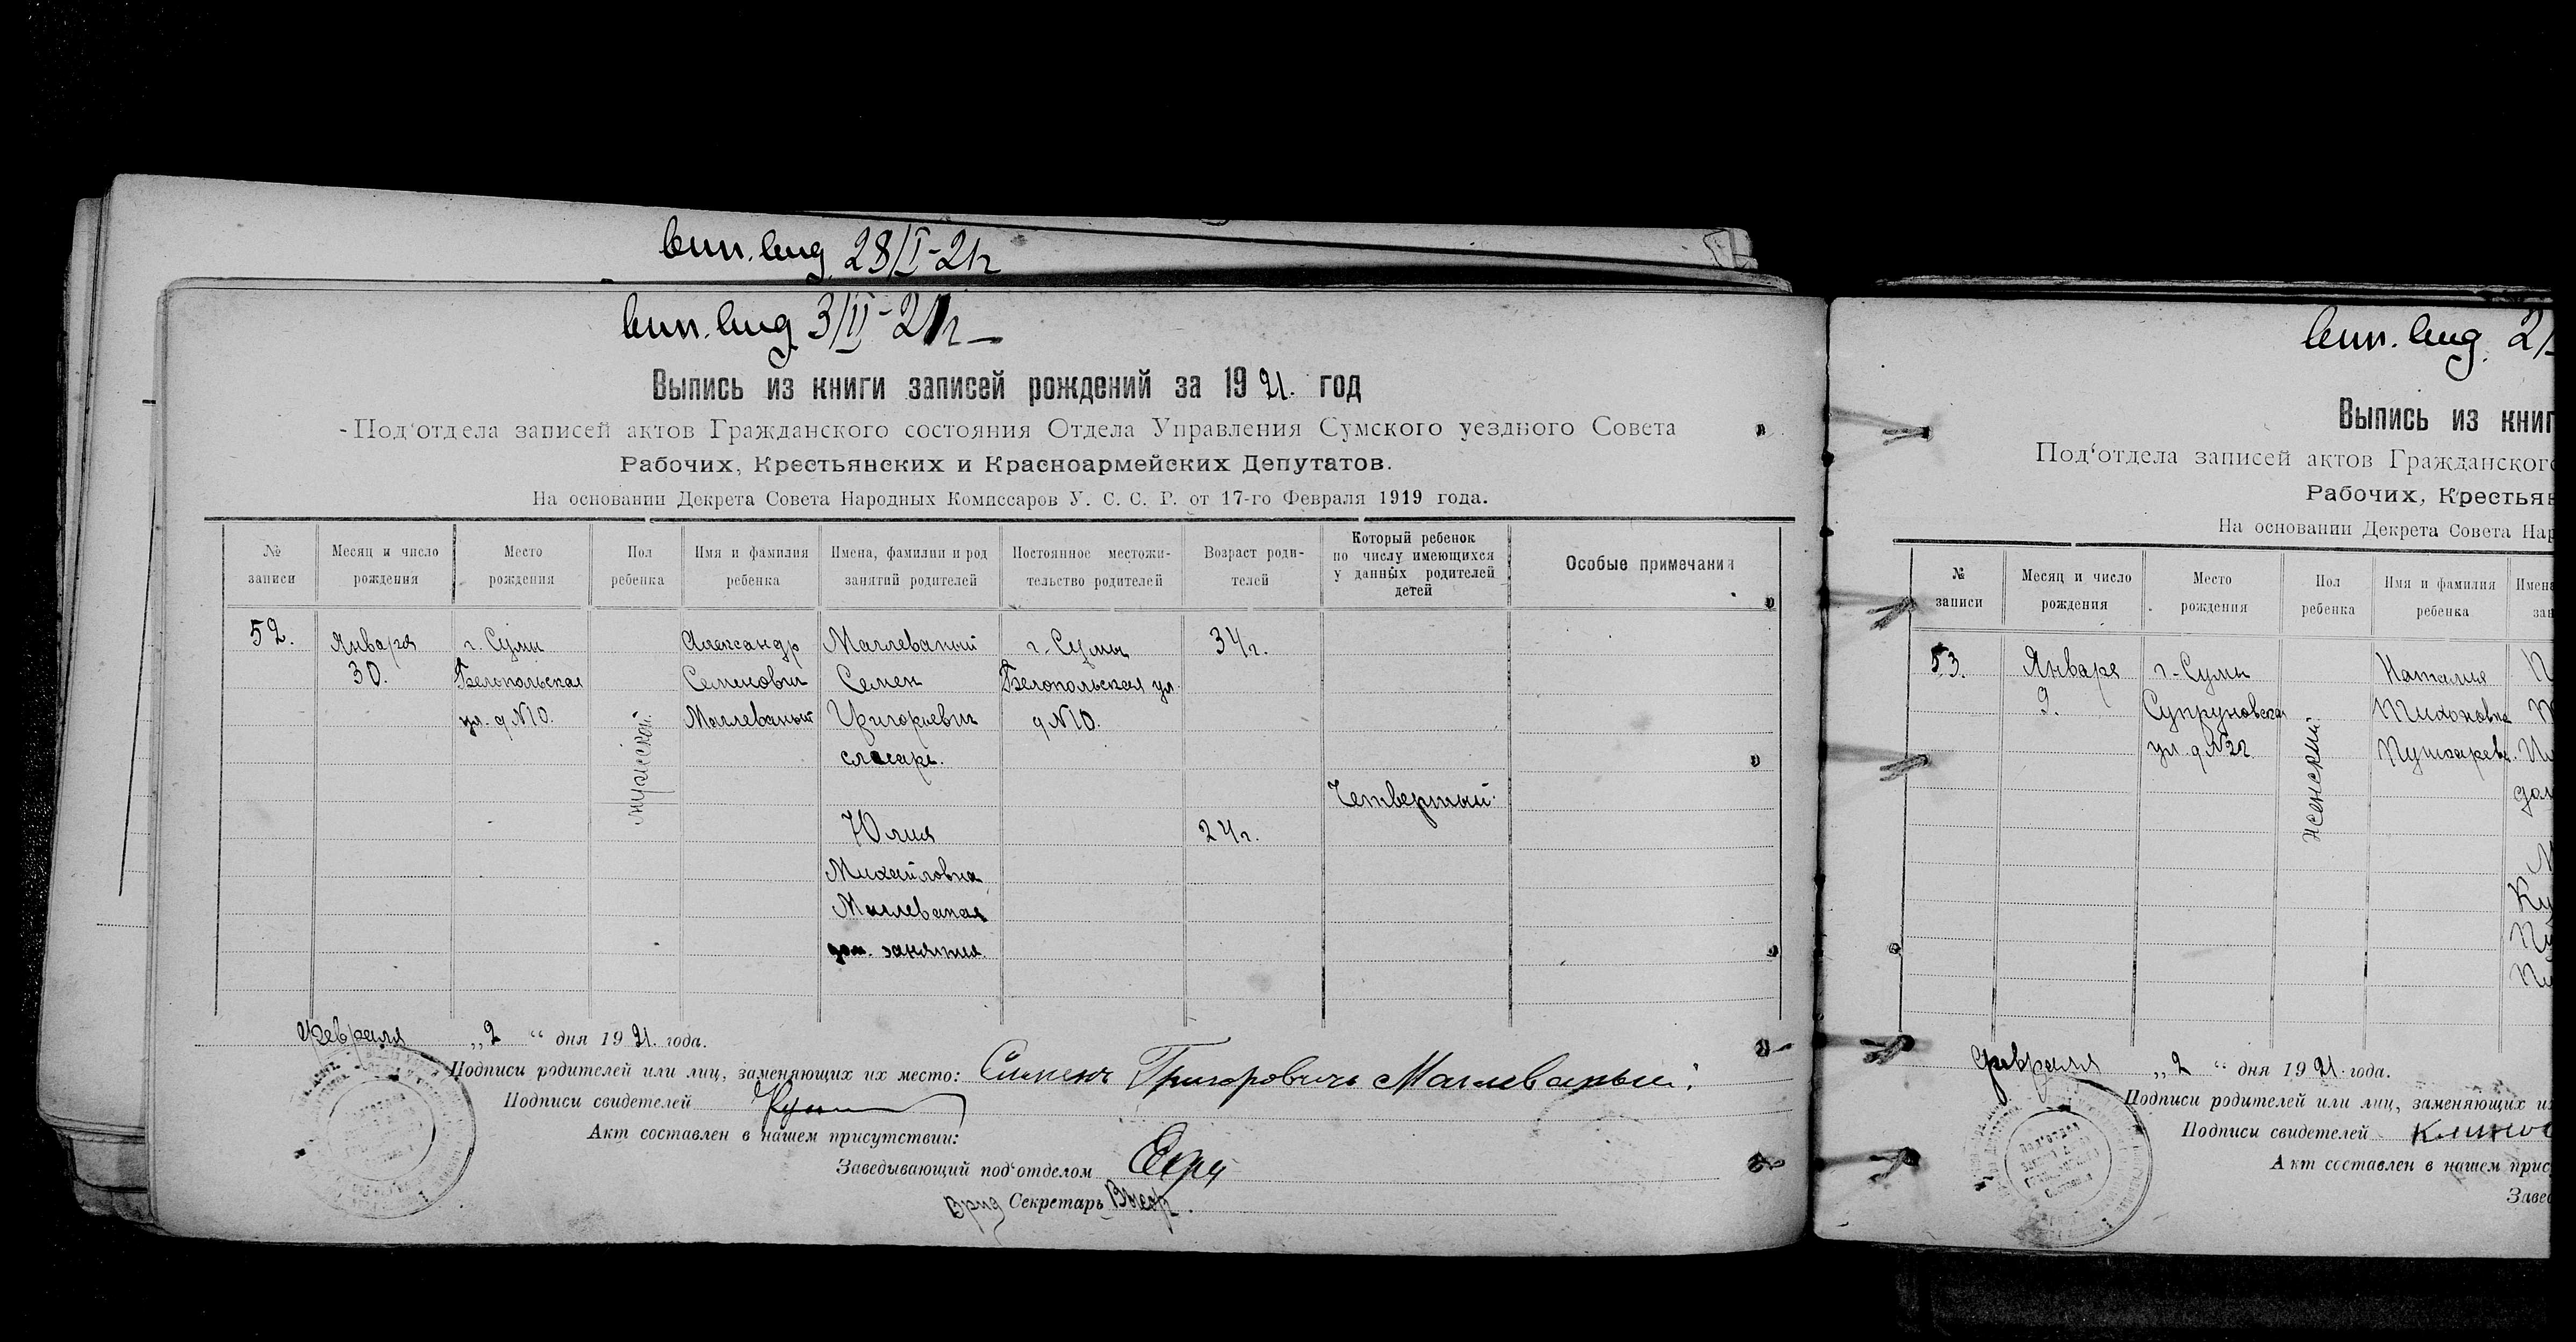 вып. выд. 28/I-21г
вып. выд 3/II-21г
Выпись из книги записей рождений за 1921. год
Под‘отдела записей актов Гражданского состояния Отдела Управления Сумского уездного Совета
Рабочих, Крестьянских и Красноармейских Депутатов.
На основании Декрета Совета Народных Комиссаров У. С. С. Р. от 17-го Февраля 1919 года.
№ записи
Месяц и число рождения
Место рождения
Пол ребенка
Имя и фамилия ребенка
Имена, фамилии и род занятий родителей
Постоянное местожительство родителей
Возраст родителей
Который ребенок по числу имеющихся у данных родителей детей
Особые примечания
52.
Января
30.
г. Сумы
Белопольская
ул. д №10.
мужской.
Александр
Семенович
Маглеваный
Маглеваный
Семен
Григорьевич
слесарь.
Юлия
Михайловна
Маглеваная
дом. занятия.
г. Сумы
Белопольская ул.
д №10.
34г.
24г.
Четвертый.
Февраля „2“ дня 1921. года.
Подписи родителей или лиц, заменяющих их место: Семенъ Григоровичь Маглеваный
Подписи свидетелей
Акт составлен в нашем присутствии:
Заведывающий под‘отделом
Врид Секретарь
вып. выд. 2/
Выпись из книг
Под‘отдела записей актов Гражданского
Рабочих, Крестьян
На основании Декрета Совета Нар
№ записи
Месяц и число рождения
Место рождения
Пол ребенка
Имя и фамилия ребенка
Имена
зан
53.
Января
9.
г. Сумы
Супруновская
ул. д №22
женский
Наталия
Тихоновна
Пушкарева.
Февраля „2“ дня 1921. года.
Подписи родителей или лиц, заменяющих их
Подписи свидетелей
Акт составлен в нашем прис
Завед